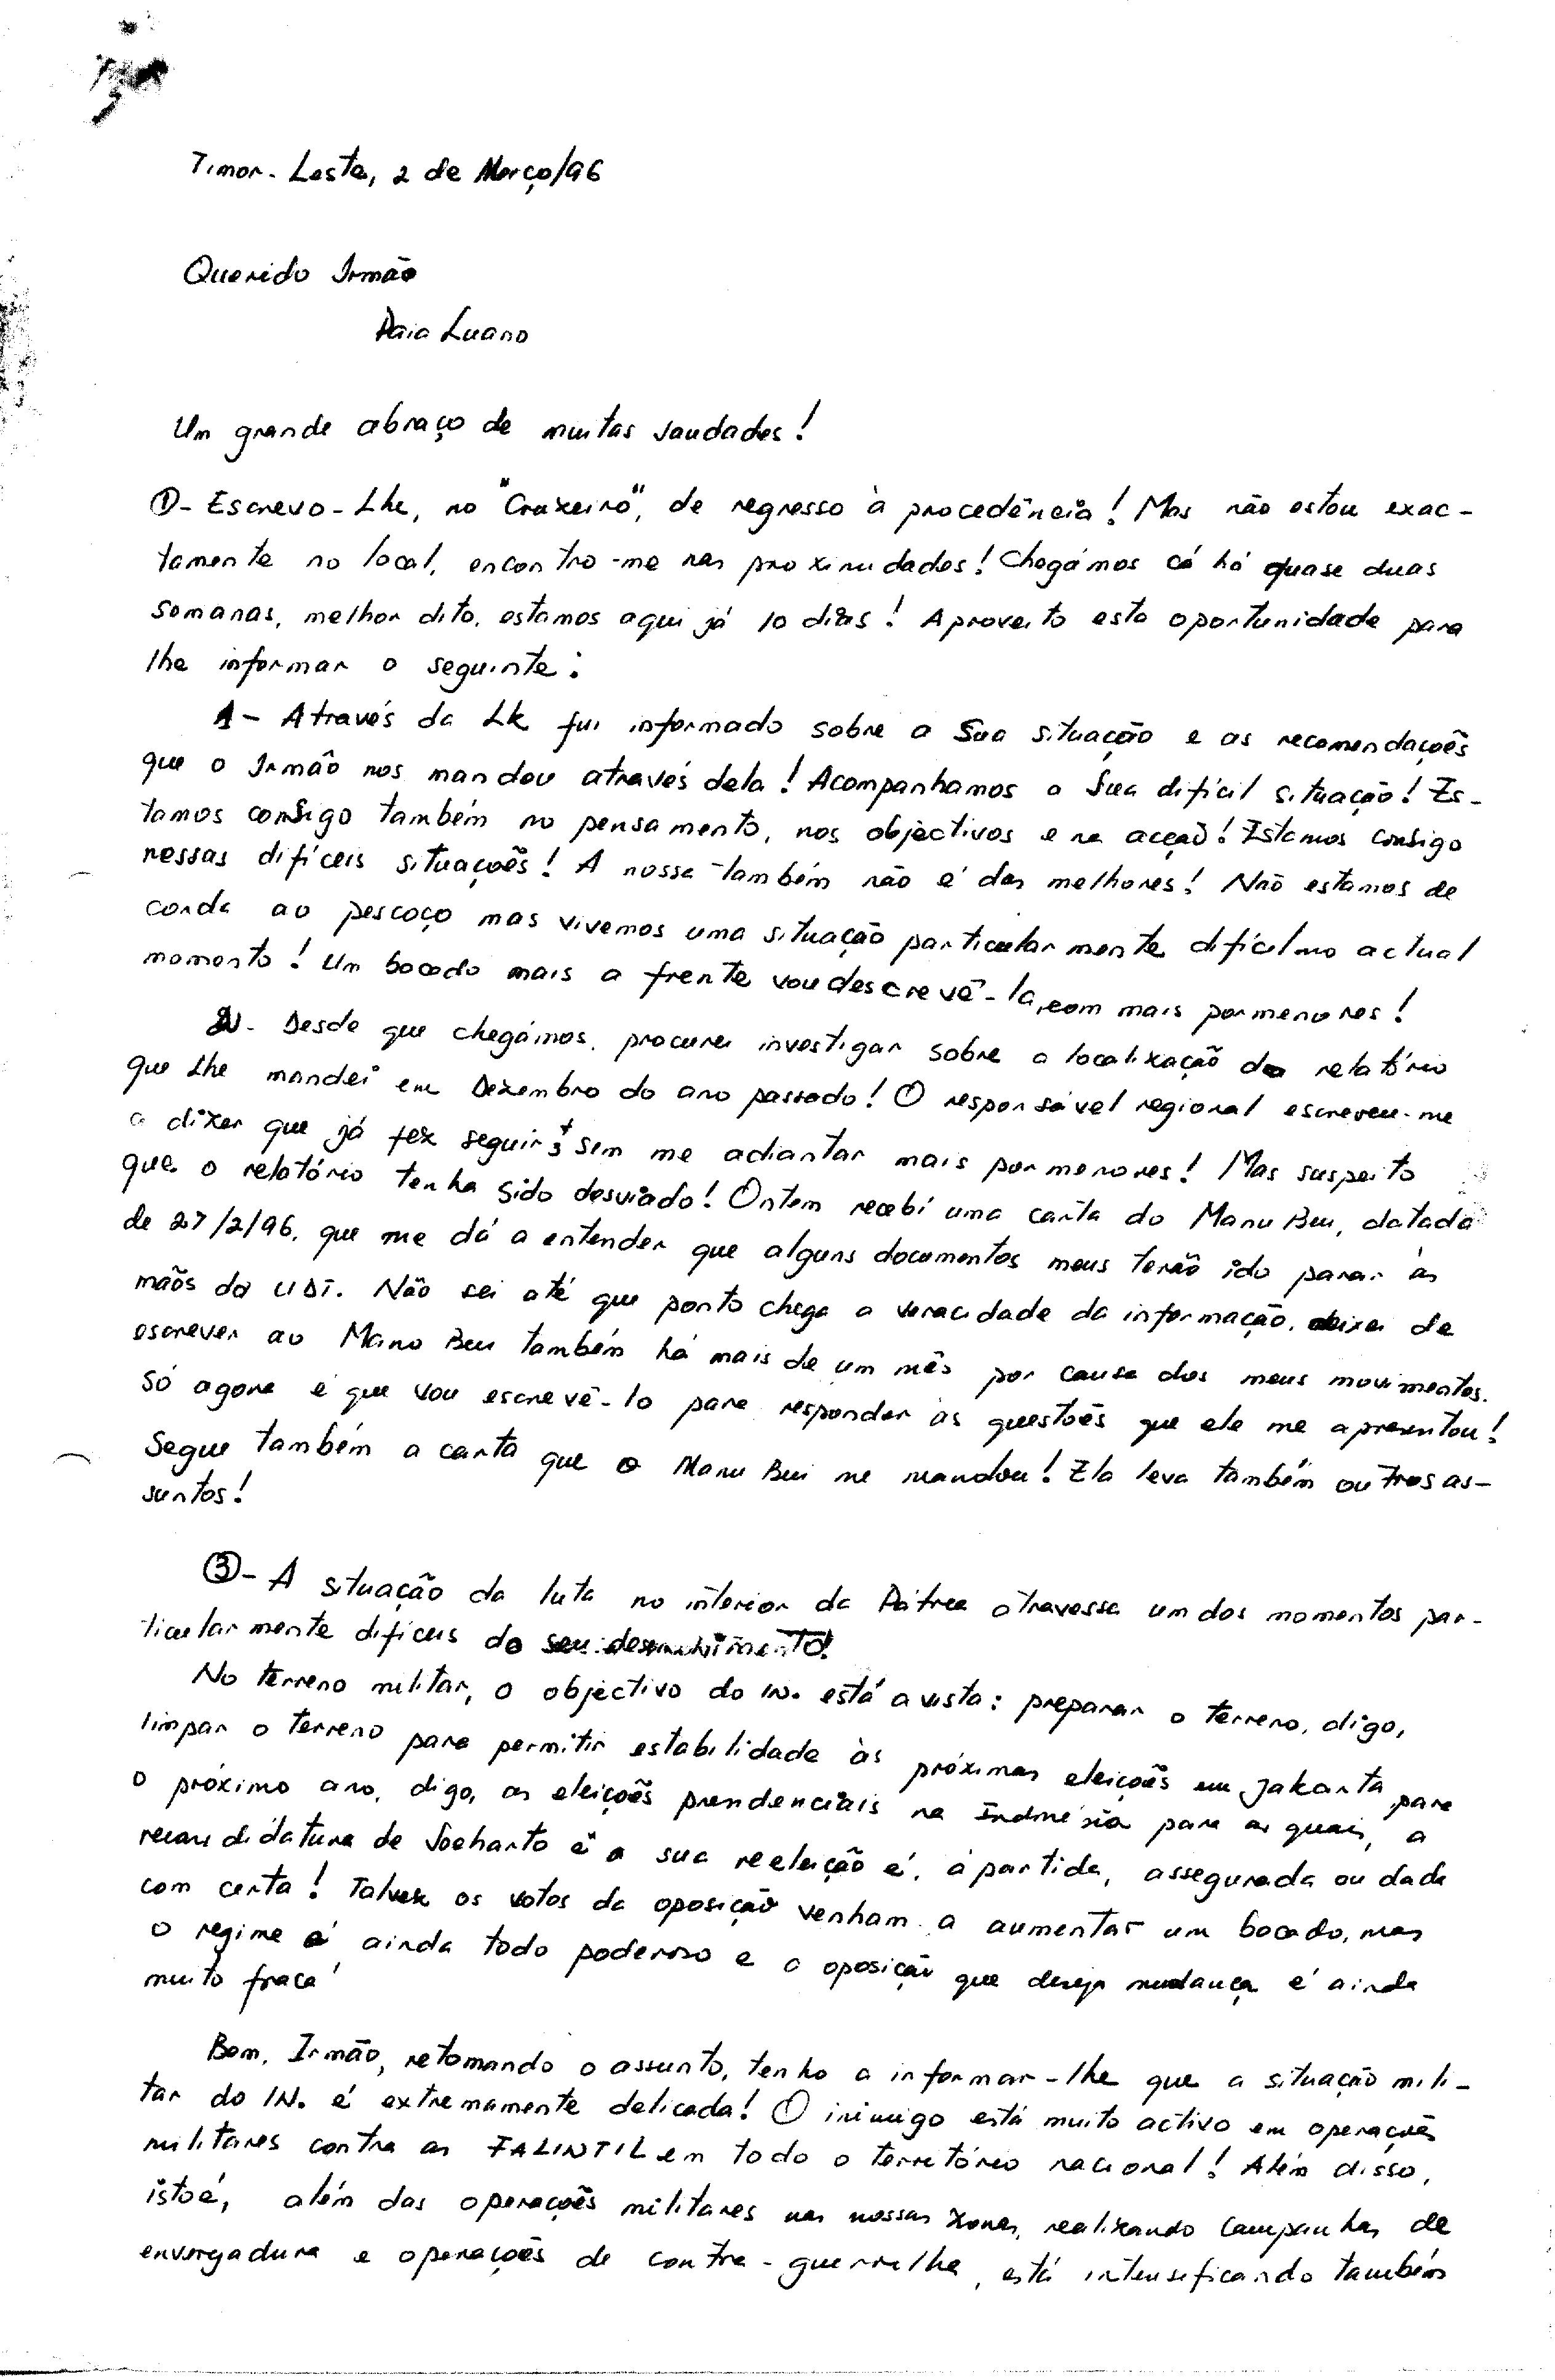 Timor-Leste, 2 de Março/96
Querido Irmão
Paia Luano
Um grande abraço de muitas saudades!
①- Escrevo-Lhe, no "Cruzeiro", de regresso à procedência! Mas não estou exac-
tamente no local, encontro-me nas proximidades! Chegámos cá há quase duas
semanas, melhor dito, estamos aqui já 10 dias! Aproveito esta oportunidade para
lhe informar o seguinte:
1- Através da LK fui informado sobre a Sua situação e as recomendações
que o Irmão nos mandou através dela! Acompanhamos a Sua difícil situação! Es-
tamos consigo também no pensamento, nos objectivos e na acção! Estamos consigo
nessas difíceis situações! A nossa também não é das melhores! Não estamos de
corda ao pescoço mas vivemos uma situação particularmente difícil no actual
momento! Um bocado mais a frente vou descrevê-la, com mais pormenores!
2- Desde que chegámos, procurei investigar sobre a localização do relatório
que Lhe mandei em Dezembro do ano passado! O responsável regional escreveu-me
a dizer que já fez seguir sem me adiantar mais pormenores! Mas suspeito
que o relatório tenha sido desviado! Ontem recebi uma carta do Manu Bui, datada
de 27/2/96, que me dá a entender que alguns documentos meus terão ido parar às
mãos da UDT. Não sei até que ponto chega a veracidade da informação. deixei de
escrever ao Mano Bui também há mais de um mês por causa dos meus movimentos.
Só agora é que vou escrevê-lo para responder às questões que ele me apresentou!
Segue também a carta que o Manu Bui me mandou! Ela leva também outros as-
suntos!
③- A situação da luta no interior da Pátria atravessa um dos momentos par-
ticularmente difíceis do seu
No terreno militar, o objectivo do IN. está a vista: preparar o terreno, digo,
limpar o terreno para permitir estabilidade às próximas eleições em Jakarta para
o próximo ano, digo, as eleições presidenciais na Indonésia para as quais, a
recandidatura de Soeharto e a sua reeleição é, à partida, assegurada ou dada
com certa! Talvez os votos da oposição venham a aumentar um bocado, mas
o regime é ainda todo poderoso e a oposição que deseja mudança é ainda
muito fraca!
Bom, Irmão, retomando o assunto, tenho a informar-lhe que a situação mili-
tar do IN. é extremamente delicada! O inimigo está muito activo em operações
militares contra as FALINTIL em todo o território nacional! Além disso,
isto é, além das operações militares nas nossas zonas, realizando campanhas de
envergadura e operações de contra-guerrilha, está intensificando também